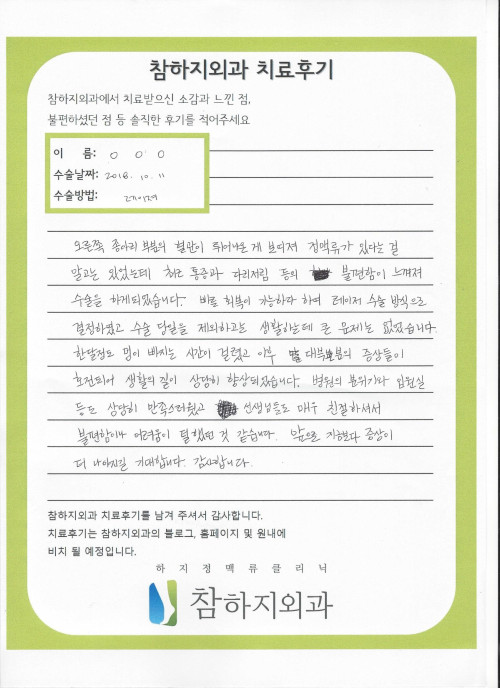 참하지외과 치료후기
참하지외과에서 치료받으신 소감과 느낀 점,
불편하셨던 점 등 솔직한 후기를 적어주세요
이 름: O O O
수술날짜: 2018. 10. 11
수술방법: 레이저
오른쪽 종아리 부분의 혈관이 튀어나온 게 보여져 정맥류가 있다는 걸
알고는 있었는데 최근 통증과 다리저림 등의 불편함이 느껴져
수술을 하게되었습니다. 빠른 회복이 가능하다 하여 레이저 수술 방식으로
결정하였고 수술 당일을 제외하고는 생활하는데 큰 문제는 없었습니다.
한달정도 멍이 빠지는 시간이 걸렸고 이후 대부분의 증상들이
호전되어 생활의 질이 상당히 향상되었습니다. 병원의 분위기나 입원실
등도 상당히 만족스러웠고 선생님들도 매우 친절하셔서
불편함이나 어려움이 덜했던 것 같습니다. 앞으로 지금보다 증상이
더 나아지길 기대합니다. 감사합니다.
참하지외과 치료후기를 남겨 주셔서 감사합니다.
치료후기는 참하지외과의 블로그, 홈페이지 및 원내에
비치 될 예정입니다.
하지정맥류클리닉
참하지외과